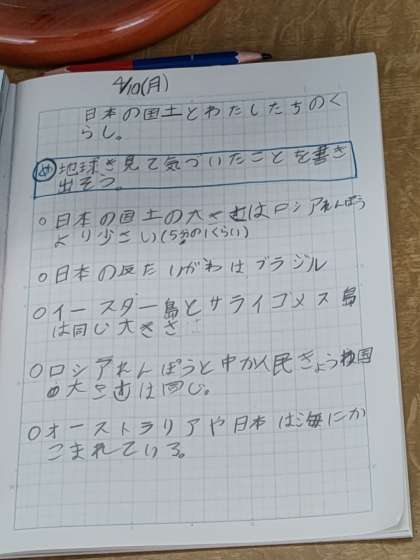 4/10(月)
日本の国土とわたしたちのく
らし。
め 地球を見て気づいたことを書き
出そう。
○日本の国土の大きさはロシアれんぽう
より少さい(5分の1くらい)
○日本の反たいがわはブラジル
○イースター島とサライゴメス島
は同じ大きさ
○ロシアれんぽうと中か人民きょう和国
の大きさは同じ。
○オーストラリアや日本は海にか
こまれている。